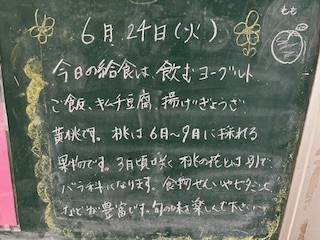 6月24日(火)
もも
今日の給食は、飲むヨーグルト
ご飯、キムチ豆腐、揚げぎょうざ
黄桃です。桃は6月～9月に採れる
果物です。3月頃咲く桃の花とは別で
バラ科になります。食物せんいやビタミン
などが豊富です。旬の味を楽しんで下さい